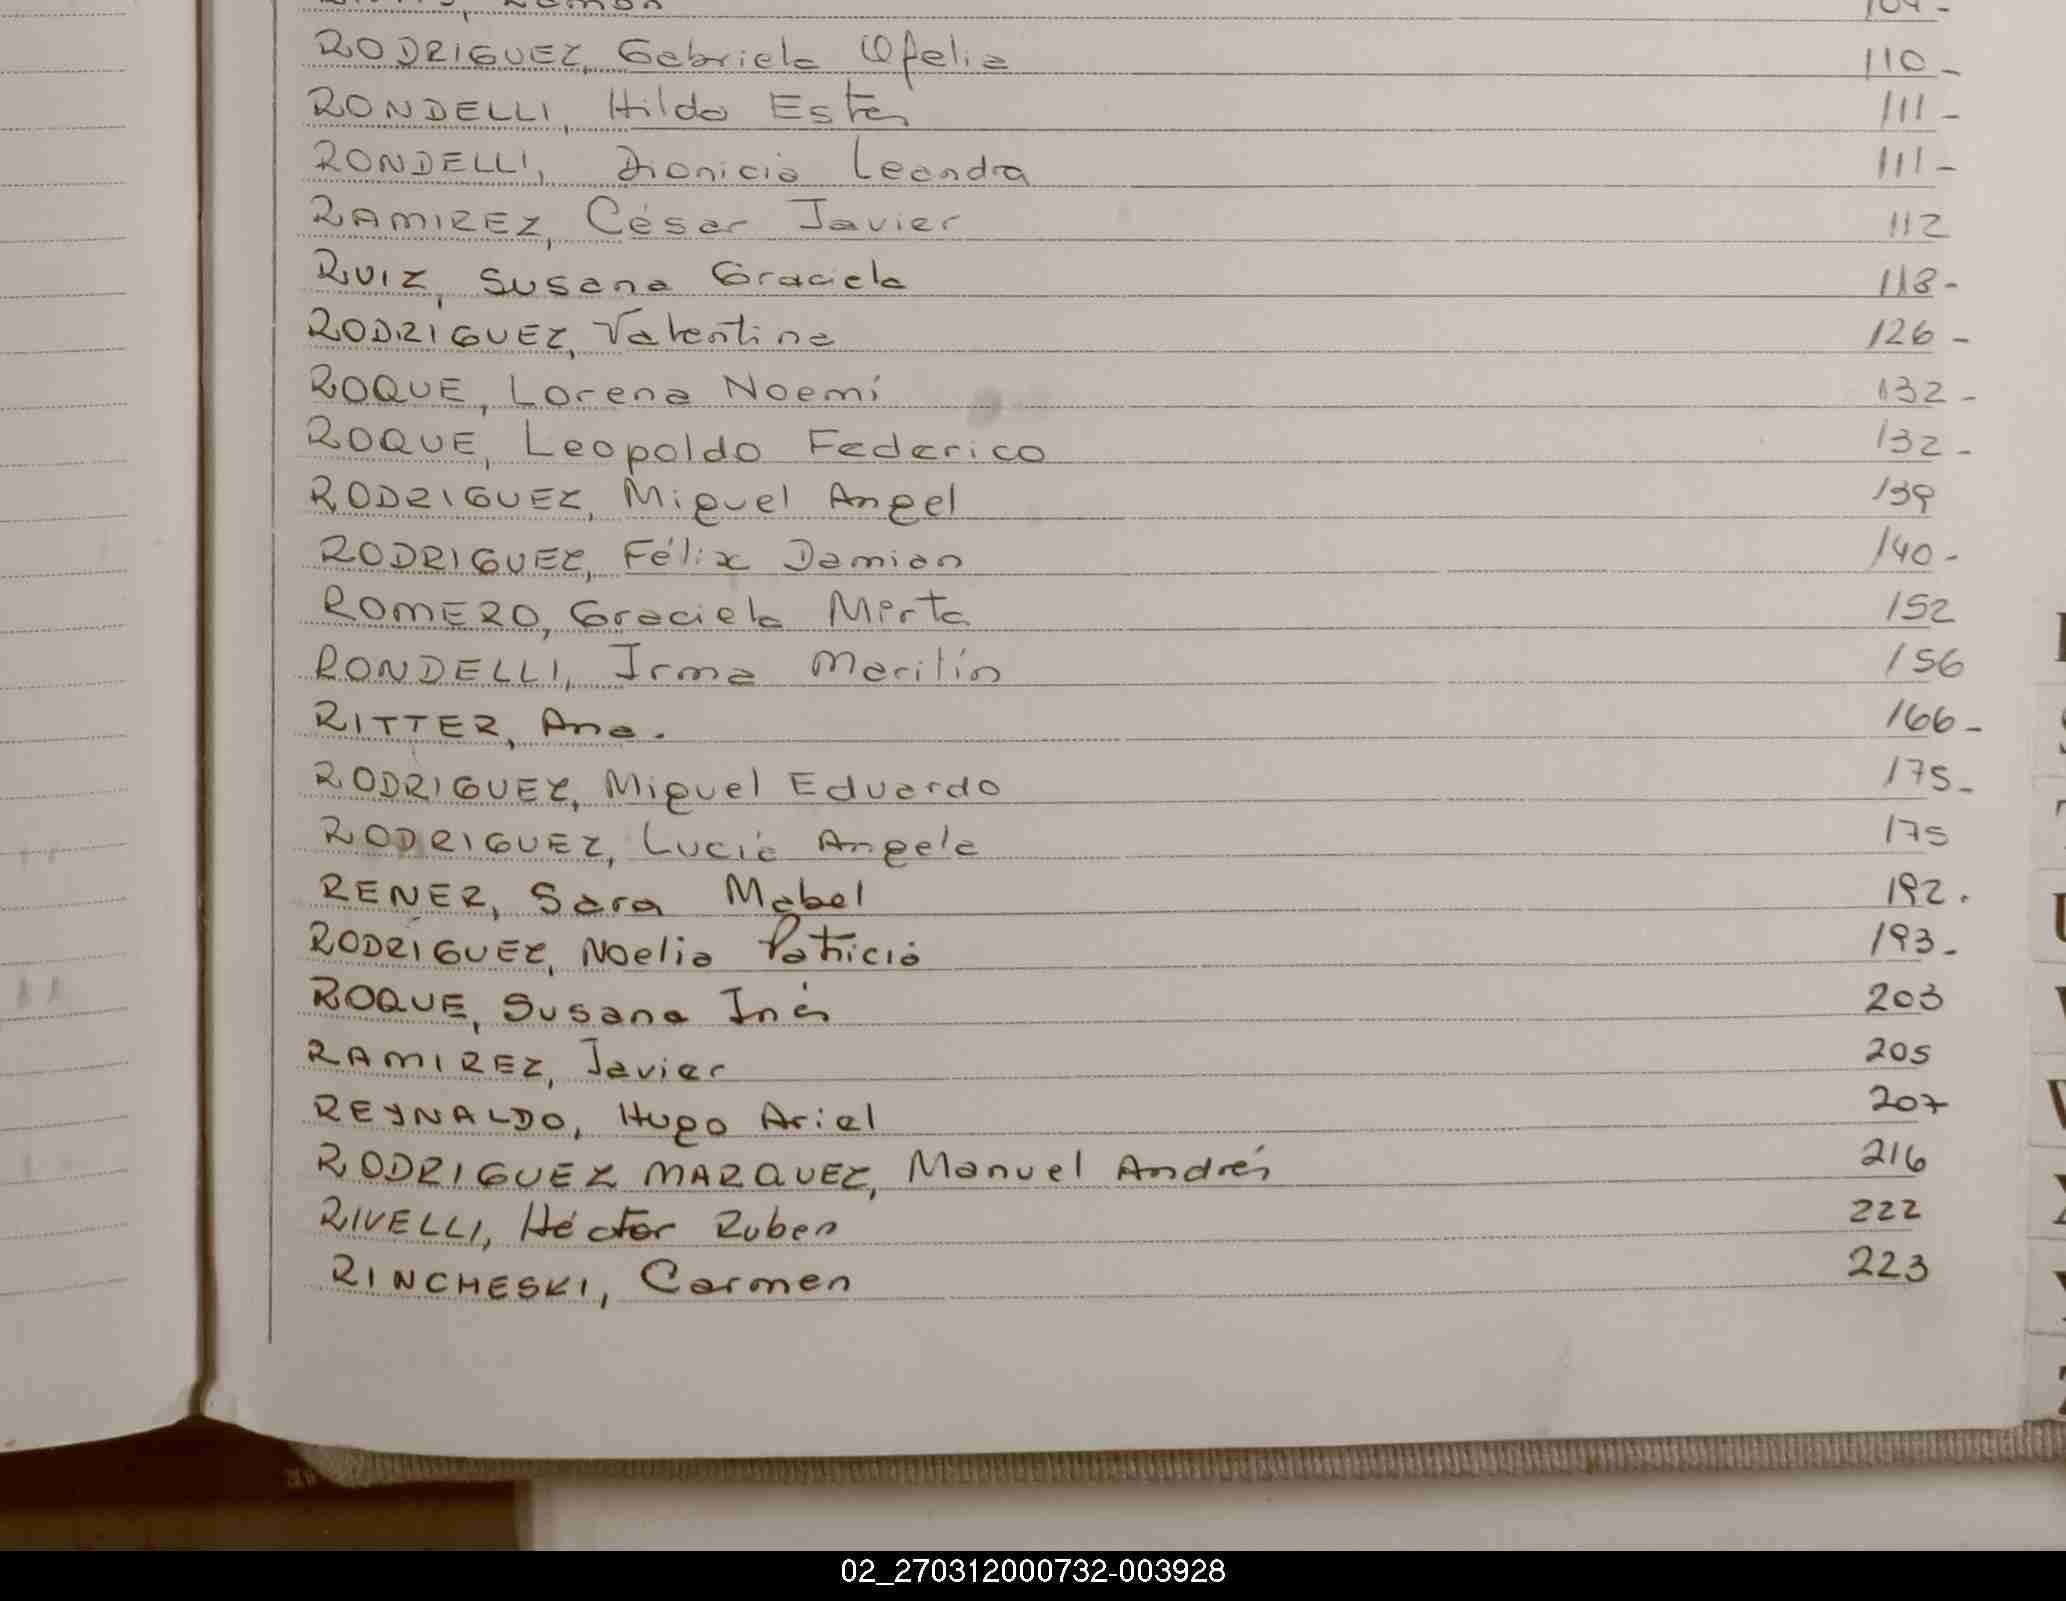 RODRIGUEZ, Gabriela Ofelia 110-
RONDELLI, Hilda Ester 111-
RONDELLI, Dionicia Leandra 111-
RAMIREZ, César Javier 112
RUIZ, Susana Graciela 118-
RODRIGUEZ, Valentina 126-
ROQUE, Lorena Noemí 132-
ROQUE, Leopoldo Federico 132-
RODRIGUEZ, Miguel Angel 139
RODRIGUEZ, Félix Damian 140-
ROMERO, Graciela Mirta 152
RONDELLI, Irma Marilín 156
RITTER, Ana. 166-
RODRIGUEZ, Miguel Eduardo 175-
RODRIGUEZ, Lucia Angela 175
RENER, Sara Mabel 192.
RODRÍGUEZ, Noelia Patricia 193-
ROQUE, Susana Inés 203
RAMIREZ, Javier 205
REYNALDO, Hugo Ariel 207
RODRIGUEZ MARQUEZ, Manuel Andrés 216
RIVELLI, Héctor Ruben 222
RINCHESKI, Carmen 223
02_270312000732-003928